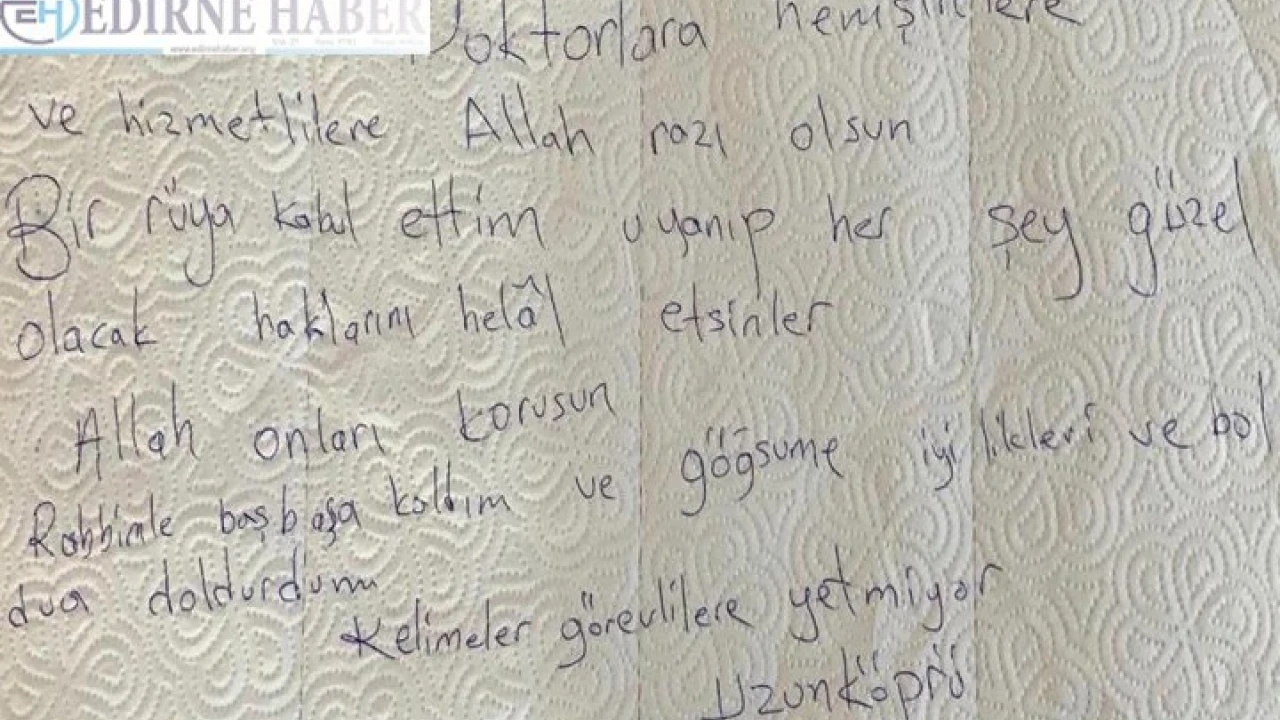 EDİRNE HABER
www.edirnehaber.org
Doktorlara hemşirelere
ve hizmetlilere Allah razı olsun
Bir rüya kabul ettim uyanıp her şey güzel
olacak haklarını helâl etsinler
Allah onları korusun
Rabbimle başbaşa kaldım ve göğsüme iyilikleri ve bol
dua doldurdum
Kelimeler görevlilere yetmiyor
Uzunköprü